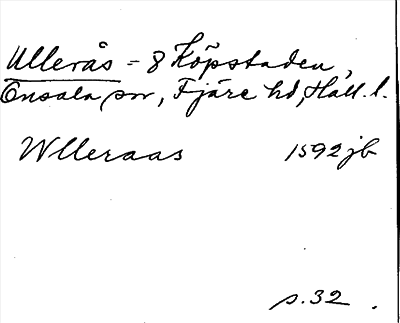 Ullerås = 8 Köpstaden,
Onsala sn, Fjäre hd, Hall. l.
Wlleraas 1592 jb
s. 32.